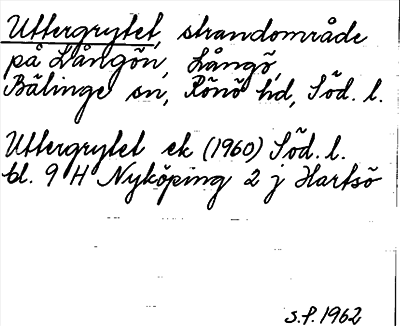 Uttergrytet, strandområde
på Långön, Långö,
Bälinge sn, Rönö hd, Söd. l.
Uttergrytet ek (1960) Söd. l.
bl. 9 H Nyköping 2 j Hartsö
s.f. 1962